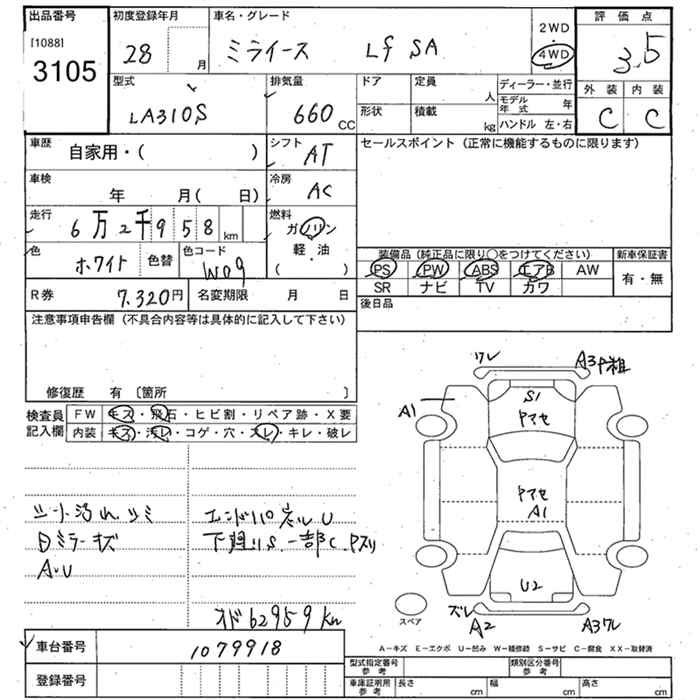 出品番号 初度登録年月 車名・グレード 2WD 評価点
[1088] 3105 28 月 ミライース Lf SA 4WD 3.5
型式 排気量 ドア 定員 人 ディーラー・並行 外装 内装
LA310S 660 CC 形状 積載 kg モデル年式 年 C C
ハンドル 左・右
車歴 自家用・( ) シフト AT セールスポイント (正常に機能するものに限ります)
車検 年 月( 日) 冷房 AC
走行 6万2千958km 燃料 ガソリン
軽・油
( )
色 ホワイト 色替 色コード W09 装備品 (純正品に限り○をつけてください) 新車保証書
PS PW ABS エアB AW 有・無
SR ナビ TV カワ
R券 7,320円 名変期限 月 日 後日品
注意事項申告欄 (不具合内容等は具体的に記入して下さい)
修復歴 有 〔箇所 〕
検査員記入欄 FW キズ・飛石・ヒビ割・リペア跡・X要
内装 キズ・汚レ・コゲ・穴・スレ・キレ・破レ
ワレ A3P粗
A1 S1
Pマセ
Pマセ
A1
U2
ズレ A2 A3ワレ
スペア
シート汚れ シミ
Bミラーキズ
A・U
下廻りS 一部C.
オド62959km
A－キズ E－エクボ U－凹み W－補修跡 S－サビ C－腐食 XX－取替済
車台番号 1079918
登録番号
型式指定番号 参考 類別区分番号 参考
車庫証明用 参考 長さ cm 幅 cm 高さ cm